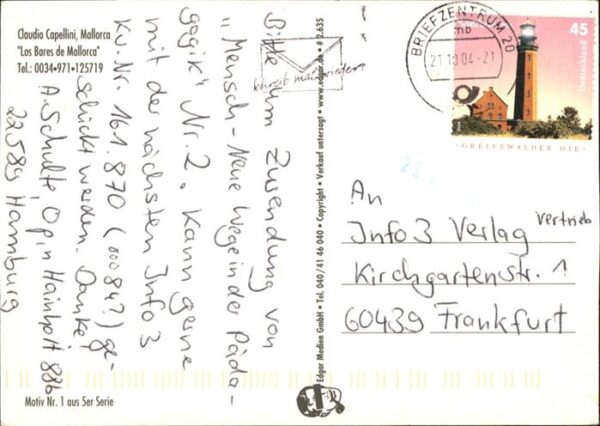 Claudio Capellini, Mallorca
"Los Bares de Mallorca"
Tel.: 0034•971•125719
Bitte um Zusendung von
"Mensch - Neue Wege in der Päda-
gogik" Nr. 2. Kann gerne
mit der nächsten Info 3
Kd. Nr. 161.870 (00084?) ge-
schickt werden. Danke!
A. Schulte, Op'n Hainholt 88b
22589 Hamburg
Motiv Nr. 1 aus 5er Serie
Edgar Medien GmbH • Tel. 040/41 46 040 • Copyright • Verkauf untersagt • www.edgar.de • # 2.635
Schreib mal wieder!
BRIEFZENTRUM 20
mb
21.10.04-21
45
Deutschland
GREIFSWALDER OIE
An
Info3 Verlag Vertrieb
Kirchgartenstr. 1
60439 Frankfurt